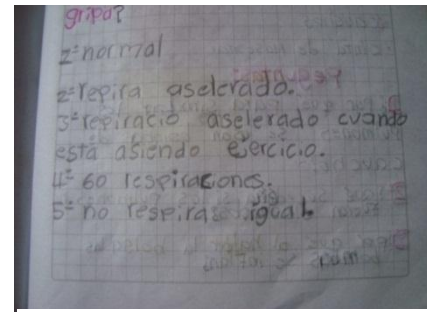 gripa?
1= normal
2= repira aselerado.
3= repiracio aselerado cuando
está asiendo ejercicio.
4= 60 respiraciones.
5= no respiras igual